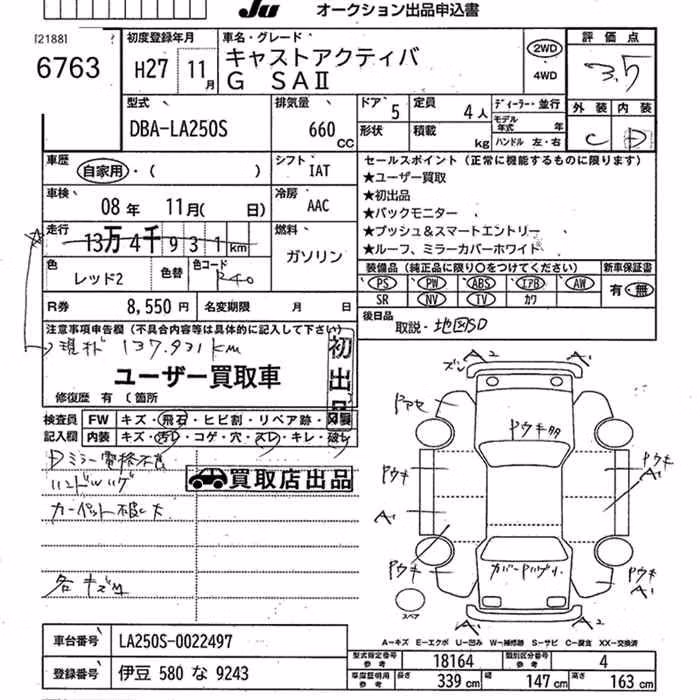 Ju オークション出品申込書
[2188]
6763
初度登録年月
H27 11月
車名・グレード
キャストアクティバ
G SAⅡ
2WD
4WD
評価点
3.5
外装 内装
C D
型式
DBA-LA250S
排気量
660 CC
ドア 5
定員 4人
ディーラー・並行
モデル年式 年
形状
積載 kg
ハンドル 左・右
車歴
自家用・( )
シフト
IAT
車検
08年 11月( 日)
冷房
AAC
走行
13万4千931km
燃料
ガソリン
色
レッド2
色替
色コード
R40
R券
8,550円
名変期限 月 日
セールスポイント(正常に機能するものに限ります)
★ユーザー買取
★初出品
★バックモニター
★プッシュ&スマートエントリー
★ルーフ、ミラーカバーホワイト
装備品(純正品に限り○をつけてください)
PS PW ABS エアB AW
SR NV TV カワ
新車保証書
有・無
後日品
取説・地図SD
注意事項申告欄(不具合内容等は具体的に記入して下さい)
現状 137,931km
ユーザー買取車
初出品
修復歴 有(箇所
検査員
記入欄
FW キズ・飛石・ヒビ割・リペア跡・
内装 キズ・汚レ・コゲ・穴・スレ・キレ・破レ
Dミラー電格不良
買取店出品
ハンドルハゲ
カーペット
各キズ
ズレ A2 A1
ドアセ
ドウキ多
Pウキ
Pウキ
A1
A1
Pウキ
Pウキ
A1
スペア
A2 A1
A-キズ E-エクボ U-凹み W-補修跡 S-サビ C-腐食 XX-交換済
車台番号
LA250S-0022497
登録番号
伊豆 580 な 9243
型式指定番号 参考
18164
類別区分番号 参考
4
車庫証明用 参考
長さ 339 cm
幅 147 cm
高さ 163 cm